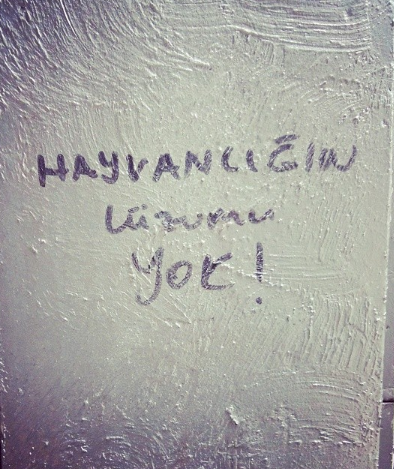 HAYVANLIĞIN
lüzumu
YOK!